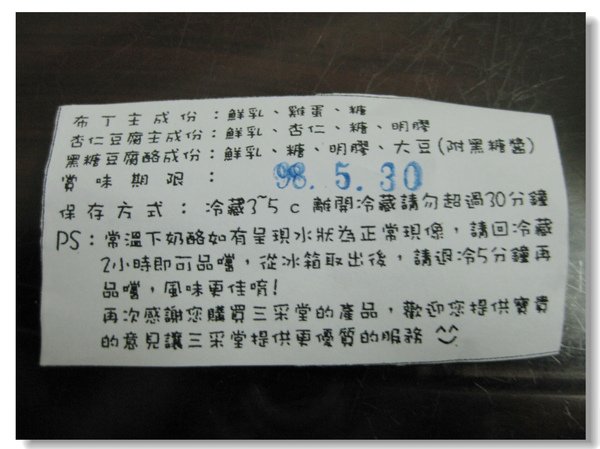 布丁主成份：鮮乳、雞蛋、糖
杏仁豆腐主成份：鮮乳、杏仁、糖、明膠
黑糖豆腐酪成份：鮮乳、糖、明膠、大豆(附黑糖醬)
賞味期限：98.5.30
保存方式：冷藏3~5 c 離開冷藏請勿超過30分鐘
PS：常溫下奶酪如有呈現水狀為正常現像，請回冷藏
2小時即可品嚐，從冰箱取出後，請退冷5分鐘再
品嚐，風味更佳唷!
再次感謝您購買三采堂的產品，歡迎您提供寶貴
的意見讓三采堂提供更優質的服務